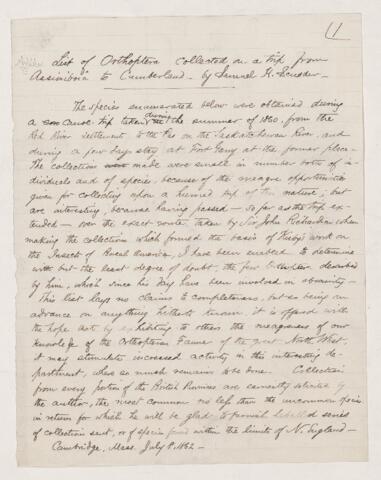 (1
List of Orthoptera collected on a trip from
Assiniboia to Cumberland - by Samuel H. Scudder -
The species enumerated below were obtained during
a canoe trip taken during the summer of 1860, from the
Red River Settlement to the Pas on the Saskatchewan River, and
during a few days stay at Fort Garry at the former place -
The collection made were small in number both of in-
dividuals and of species, because of the meagre opportunities
given for collecting upon a hurried trip of this nature, but
are interesting, because having passed - so far as the trip ex-
tended - over the exact route, taken by Sir John Richardson when
making the collection which formed the basis of Kirby's work on
the Insects of Boreal America, I have been enabled to determine
with but the least degree of doubt, the few species described
by him, which since his day have been involved in obscurity -
This list lays no claims to completeness, but as being an
advance on anything hitherto known, it is offered with
the hope that by exhibiting to others the meagreness of our
knowledge of the Orthopterian Fauna of the great North West,
it may stimulate increased activity in this interesting de-
partment, where so much remains to be done. Collections
from every portion of the British Provinces are earnestly solicited by
the author, the most common no less than the uncommon species
in return for which he will be glad to furnish labelled series
of collection sent, or of species found within the limits of N. England -
Cambridge, Mass. July 8, 1862 -